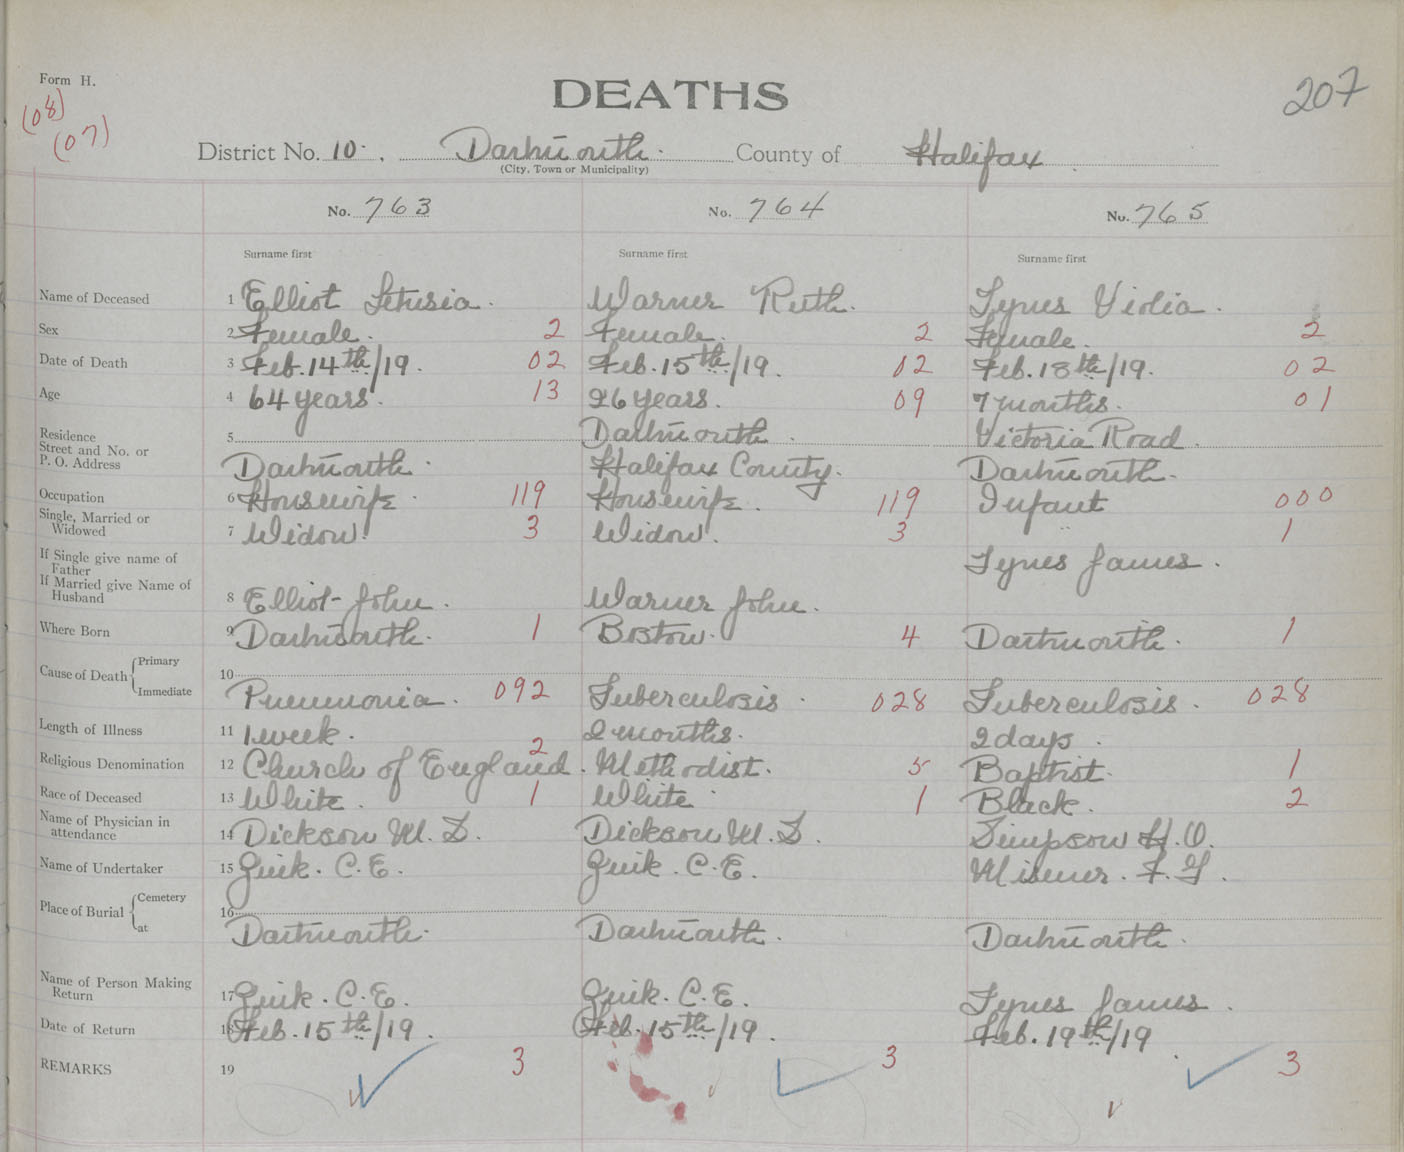 Form H.
(08)
(07)
DEATHS
207
District No. 10. Dartmouth. County of Halifax
(City, Town or Municipality)
No. 763 No. 764 No. 765
Surname first Surname first Surname first
Name of Deceased 1 Elliot Letusia. Warner Ruth. Tynes Violia.
Sex 2 Female. 2 Female. 2 Female. 2
Date of Death 3 Feb. 14th/19. 02 Feb. 15th/19. 02 Feb. 18th/19. 02
Age 4 64 years. 13 26 years. 09 7 months. 01
Residence 5 Dartmouth. Victoria Road.
Street and No. or
P. O. Address Dartmouth. Halifax County. Dartmouth.
Occupation 6 Housewife. 119 Housewife. 119 Infant 000
Single, Married or
Widowed 7 Widow. 3 Widow. 3 " 1
If Single give name of
Father Tynes James.
If Married give Name of
Husband 8 Elliot John. Warner John.
Where Born 9 Dartmouth. 1 Boston. 4 Dartmouth. 1
Cause of Death Primary 10
Immediate Pneumonia. 092 Tuberculosis. 028 Tuberculosis. 028
Length of Illness 11 1 week. 2 months. 2 days.
Religious Denomination 12 Church of England. 2 Methodist. 5 Baptist. 1
Race of Deceased 13 White. 1 White. 1 Black. 2
Name of Physician in
attendance 14 Dickson M. S. Dickson M. S. Simpson H. O.
Name of Undertaker 15 Quik. C. E. Quik. C. E. Misener. F. G.
Place of Burial Cemetery 16
at Dartmouth. Dartmouth. Dartmouth.
Name of Person Making
Return 17 Quik. C. E. Quik. C. E. Tynes James.
Date of Return 18 Feb. 15th/19. Feb. 15th/19. Feb. 19th/19
REMARKS 19 3 3 3